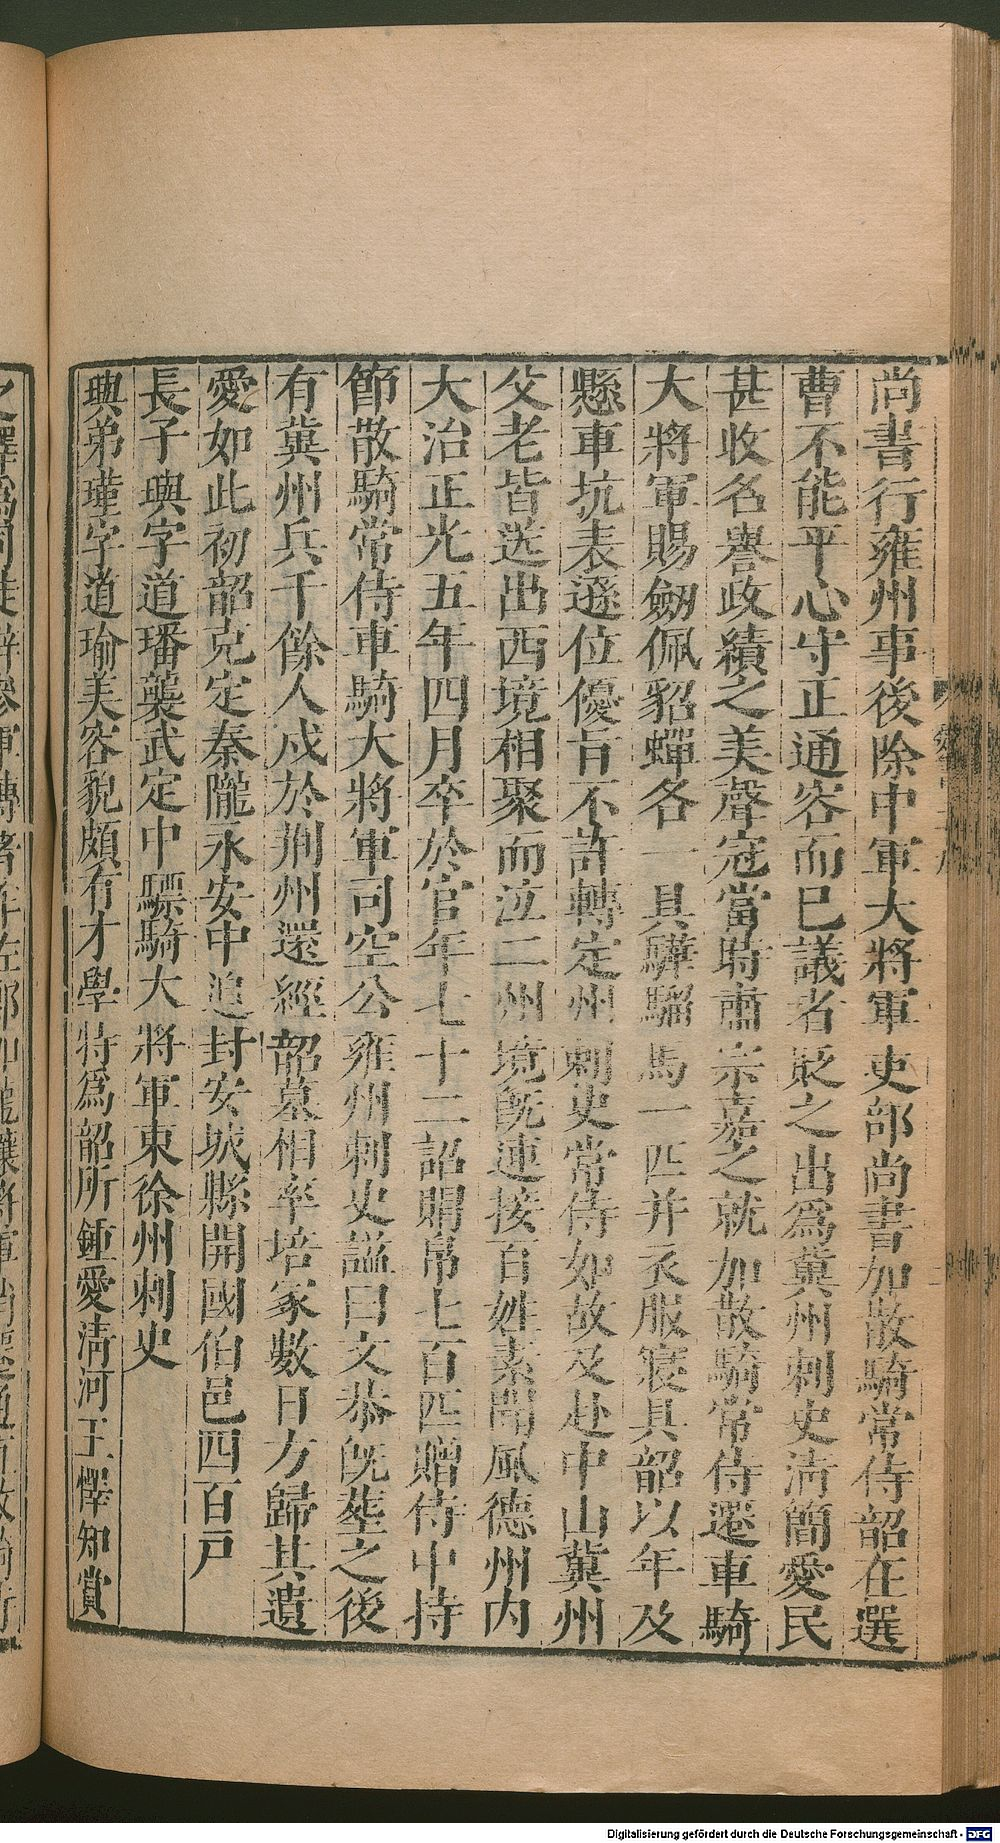 尚書行雍州事後除中軍大將軍吏部尚書加散騎常侍韶在選
曹不能平心守正通容而已議者貶之出爲冀州刺史清簡愛民
甚收名譽政績之美聲冠當時肅宗嘉之就加散騎常侍遷車騎
大將軍賜劔佩貂蟬各一具驊騮馬一匹并衣服寢具韶以年及
懸車抗表遜位優旨不許轉定州刺史常侍如故及赴中山冀州
父老皆送出西境相聚而泣二州境既連接百姓素聞風德州內
大治正光五年四月卒於官年七十二詔賜帛七百匹贈侍中持
節散騎常侍車騎大將軍司空公雍州刺史謚曰文恭既葬之後
有冀州兵千餘人戍於荆州還經韶墓相率培冢數日方歸其遺
愛如此初韶克定秦隴永安中追封安城縣開國伯邑四百戸
長子輿字道璠襲武定中驃騎大將軍東徐州刺史
輿弟瑾字道瑜美容貌頗有才學特爲韶所鍾愛清河王懌知賞
Digitalisierung gefördert durch die Deutsche Forschungsgemeinschaft - DFG